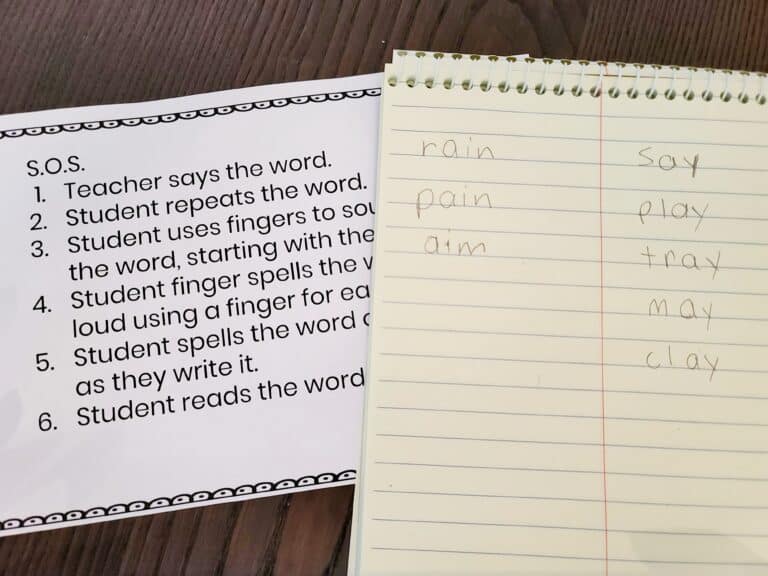 S.O.S.
1. Teacher says the word.
2. Student repeats the word.
3. Student uses fingers to
the word, starting with the
4. Student finger spells the
loud using a finger for
5. Student spells the word
as they write it.
6. Student reads the word
rain
pain
aim
say
play
tray
may
clay